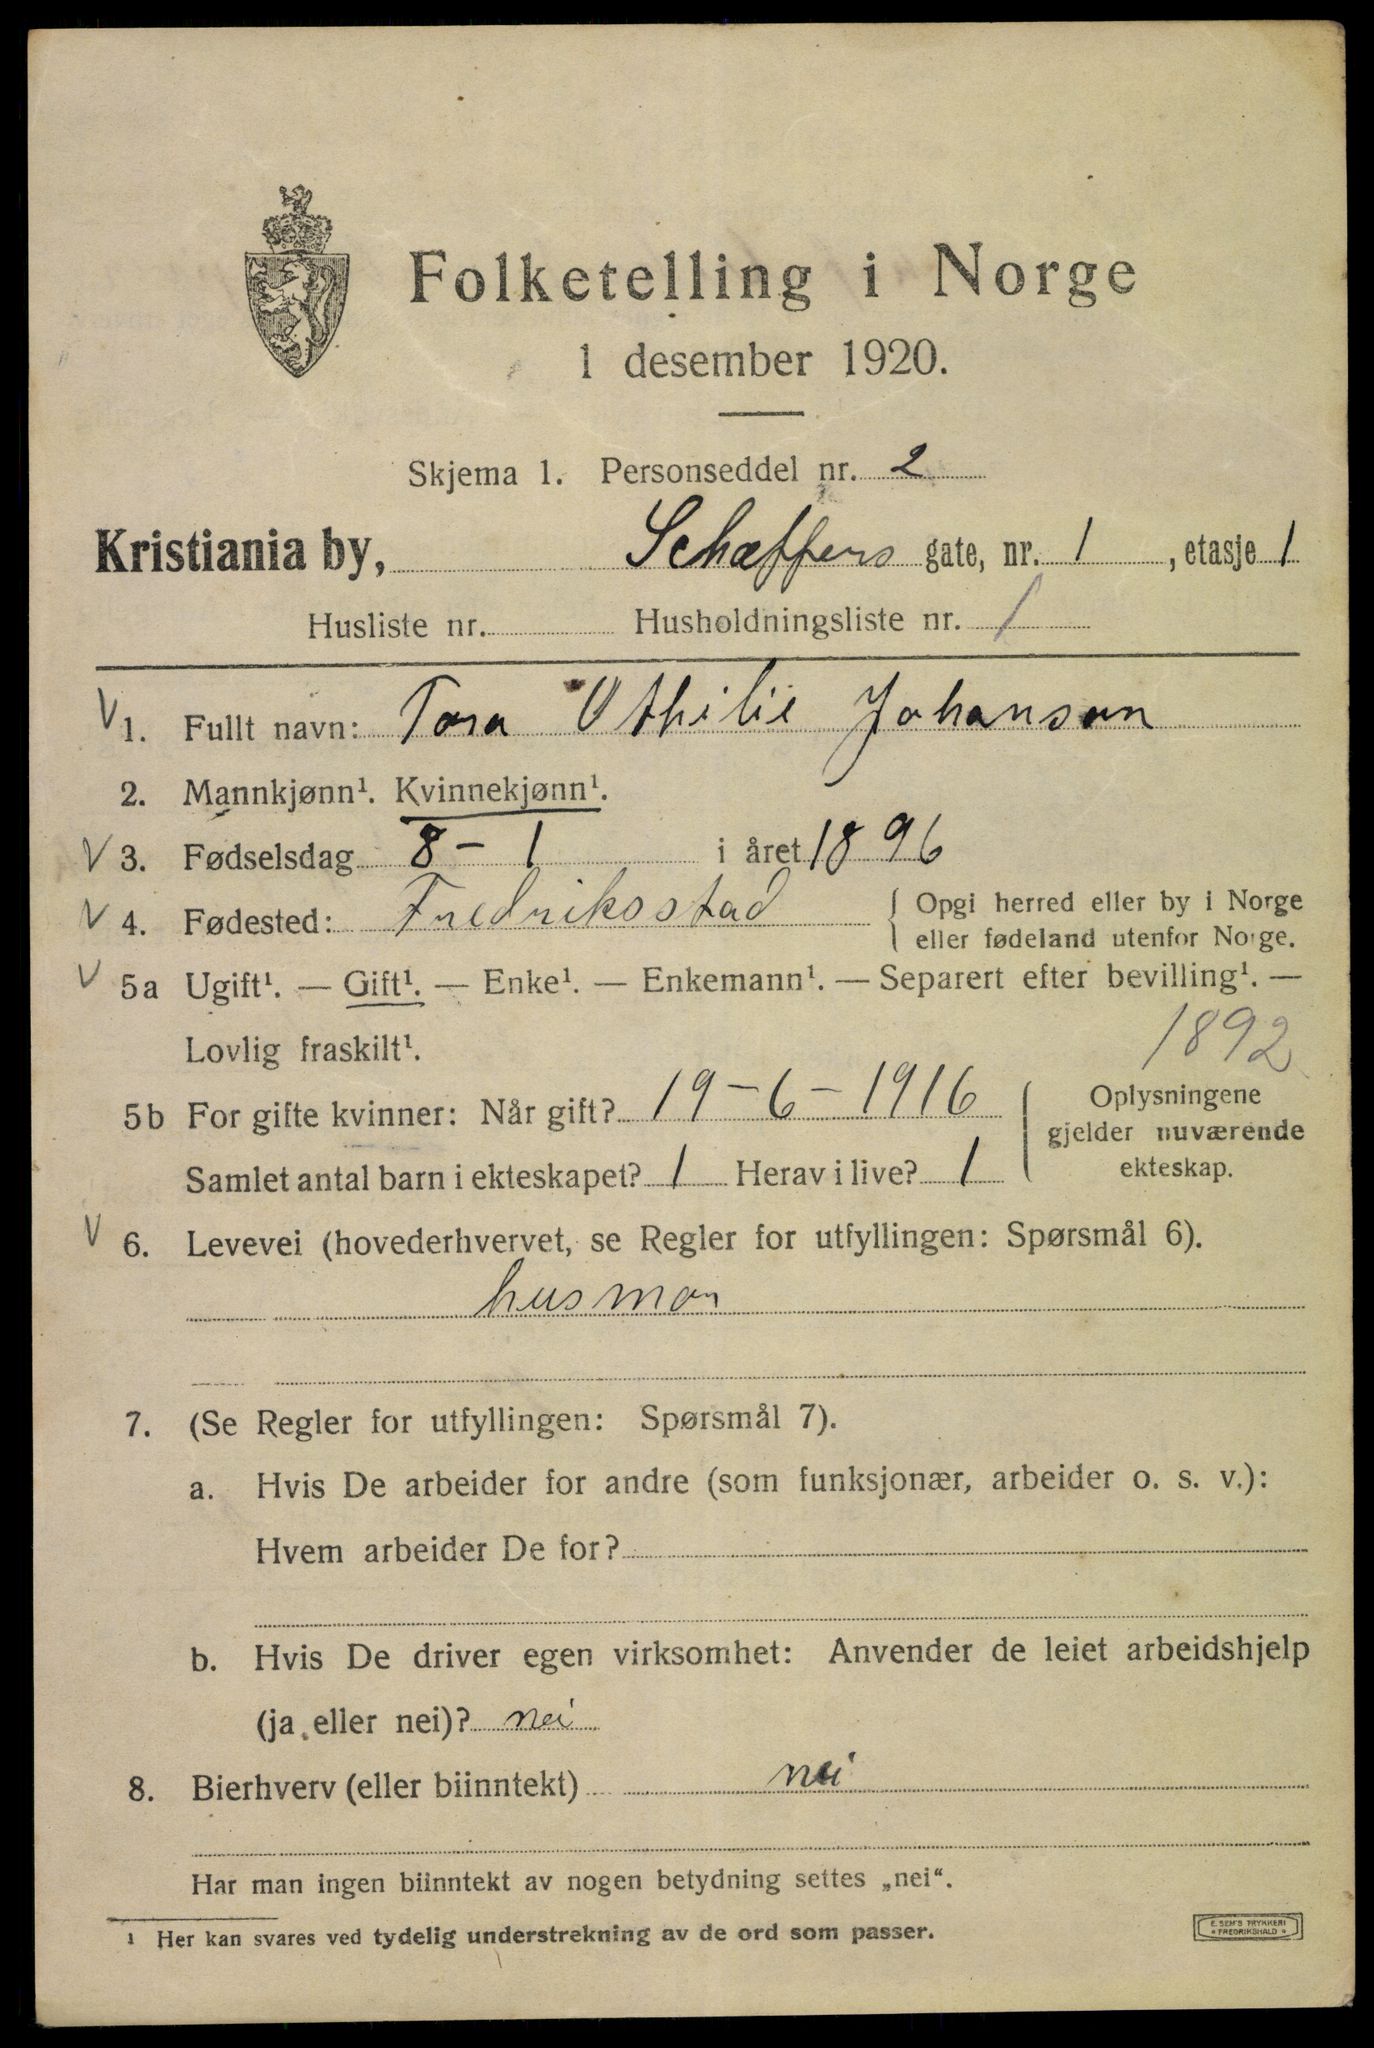 Folketelling i Norge
1 desember 1920.
Skjema 1. Personseddel nr. 2
Kristiania by, Schæffers gate, nr. 1, etasje 1
Husliste nr. Husholdningsliste nr. 1
V 1. Fullt navn: Tora Othilie Johanson
2. Mannkjønn¹. Kvinnekjønn¹.
V 3. Fødselsdag 8 - 1 i året 1896
V 4. Fødested: Fredriksstad { Opgi herred eller by i Norge
eller fødeland utenfor Norge.
V 5a Ugift¹. — Gift¹. — Enke¹. — Enkemann¹. — Separert efter bevilling¹. —
Lovlig fraskilt¹. 1892
5b For gifte kvinner: Når gift? 19-6-1916 { Oplysningene
gjelder nuværende
Samlet antal barn i ekteskapet? 1 Herav i live? 1 ekteskap.
V 6. Levevei (hovederhvervet, se Regler for utfyllingen: Spørsmål 6).
husmor
7. (Se Regler for utfyllingen: Spørsmål 7).
a. Hvis De arbeider for andre (som funksjonær, arbeider o. s. v.):
Hvem arbeider De for?
b. Hvis De driver egen virksomhet: Anvender de leiet arbeidshjelp
(ja eller nei)? nei
8. Bierhverv (eller biinntekt) nei
Har man ingen biinntekt av nogen betydning settes „nei“.
¹ Her kan svares ved tydelig understrekning av de ord som passer.
E. SEM'S TRYKKERI
FREDRIKSHALD